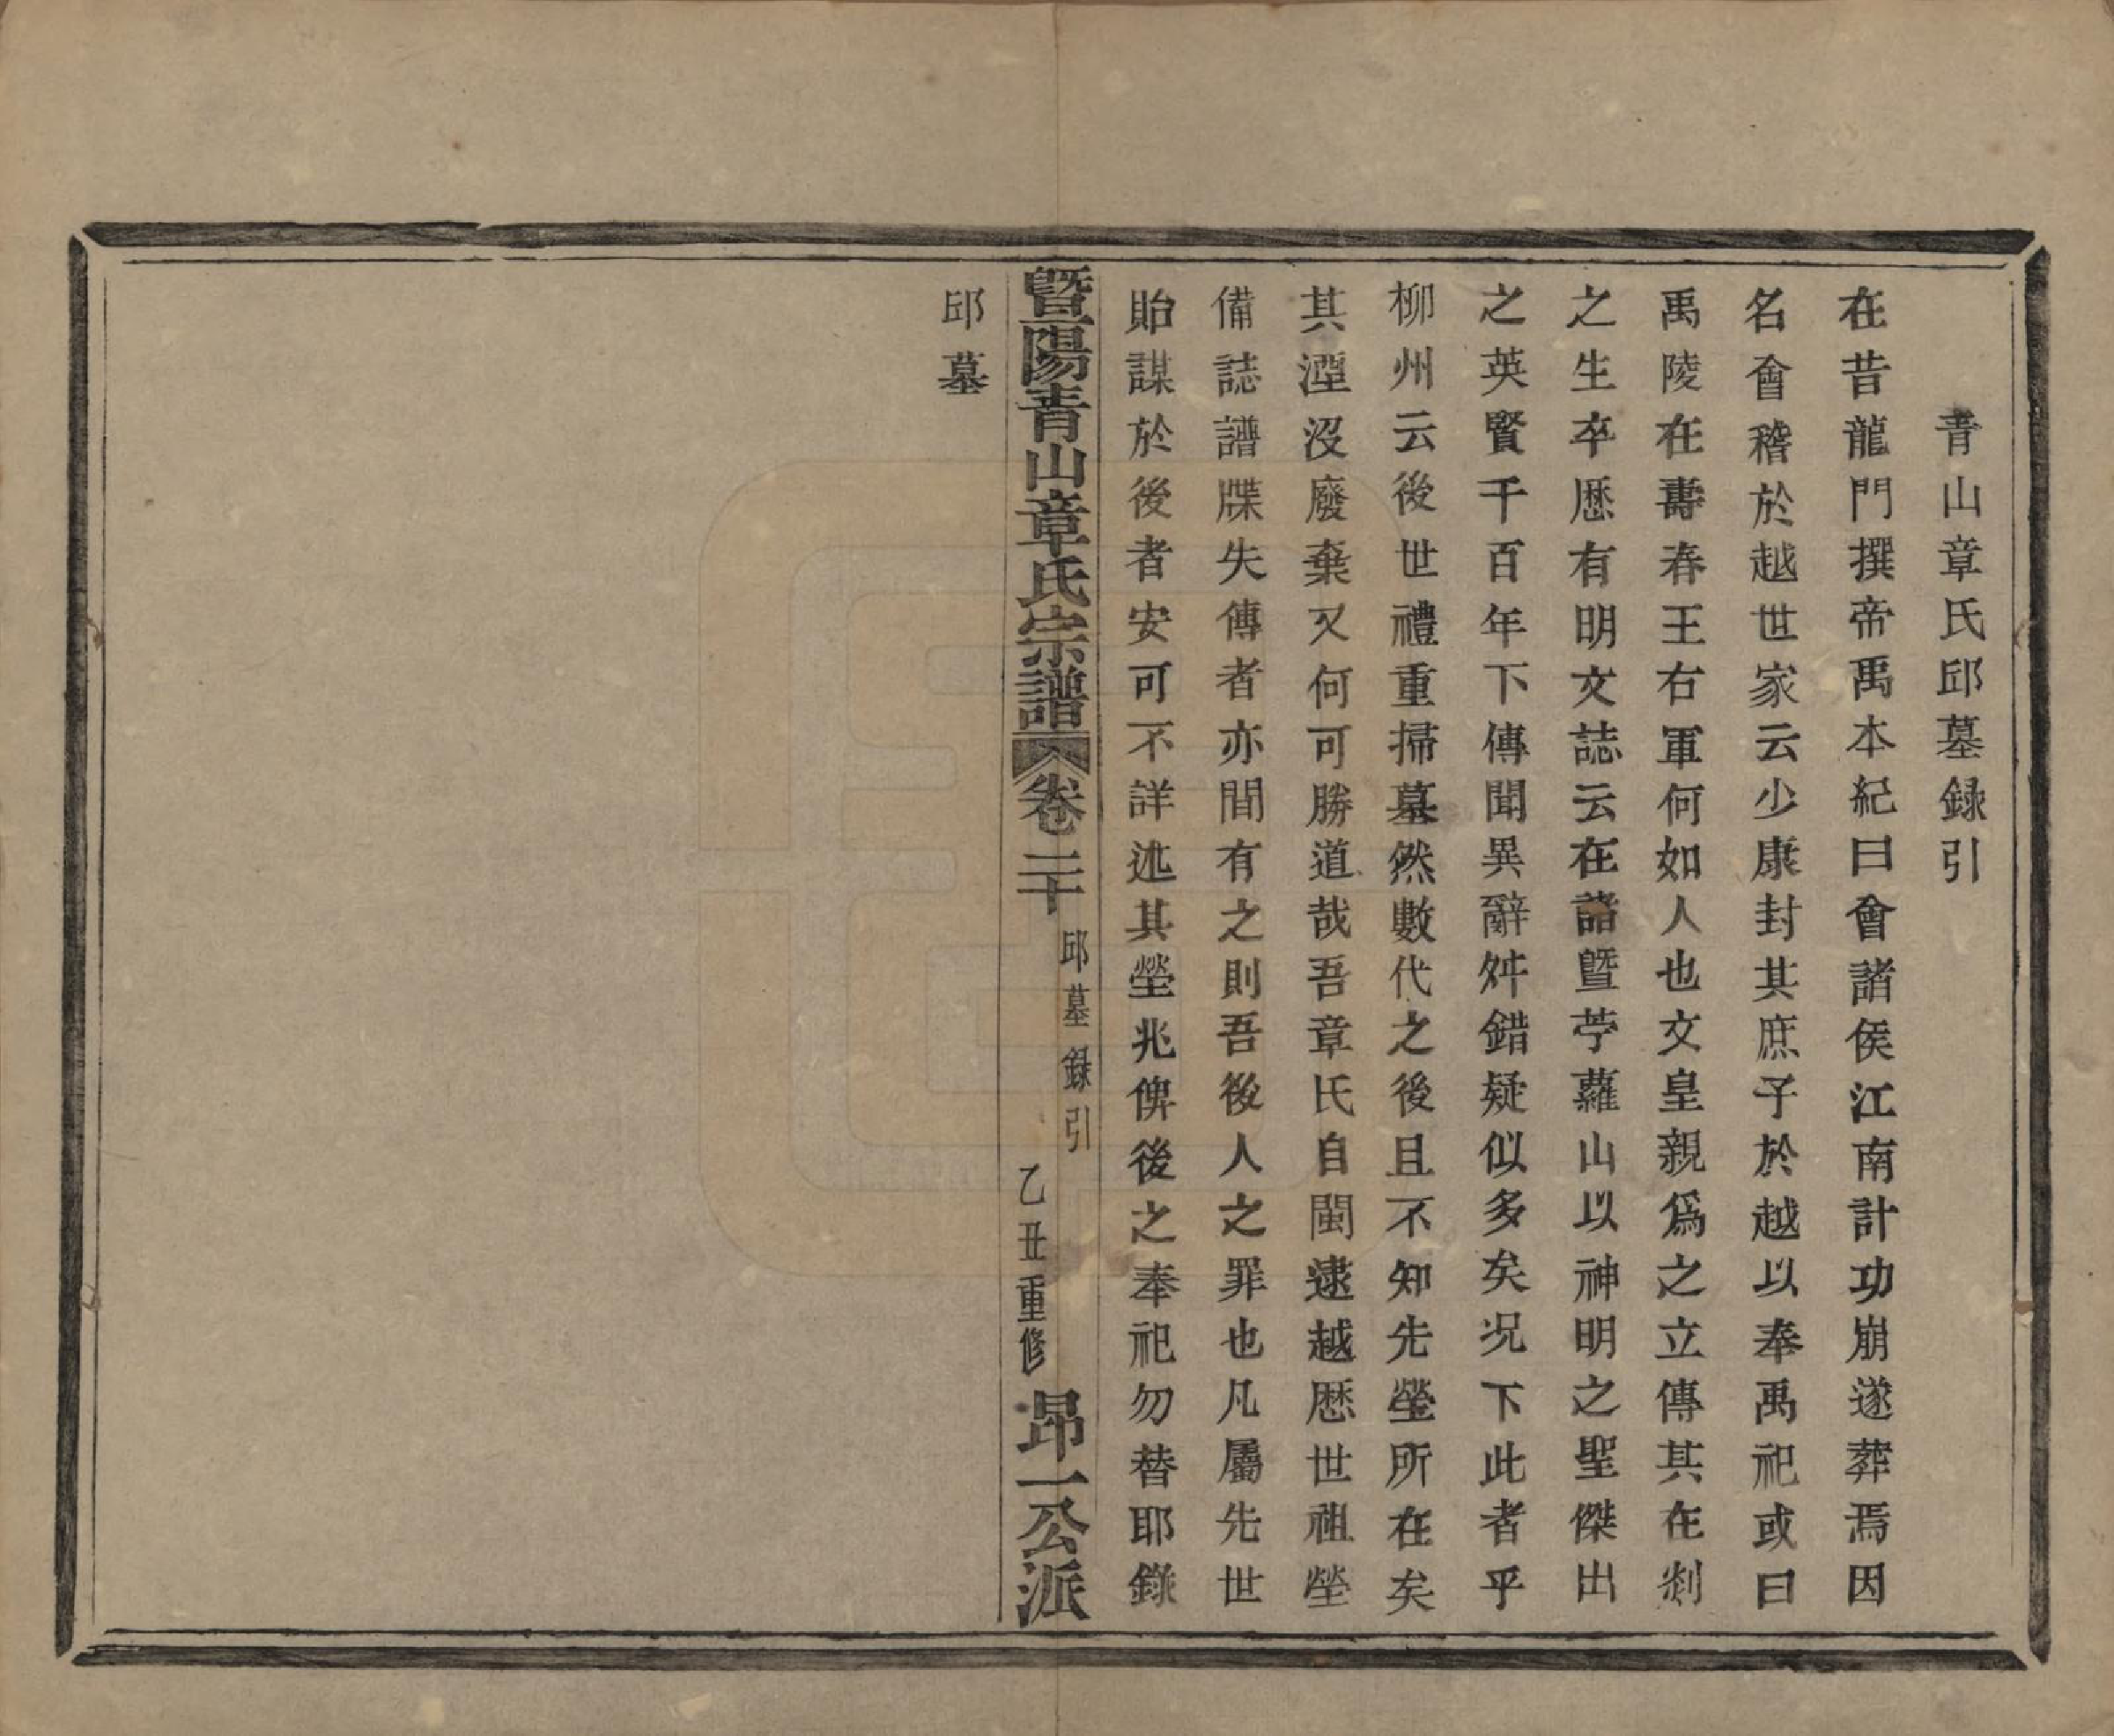 青山章氏邱墓録引
在昔龍門撰帝禹本紀曰會諸侯江南計功崩遂葬焉因
名會稽於越世家云少康封其庶子於越以奉禹祀或曰
禹陵在壽春王右軍何如人也文皇親爲之立傳其在剡
之生卒歷有明文誌云在諸暨苧蘿山以神明之聖傑出
之英賢千百年下傳聞異辭舛錯疑似多矣况下此者乎
柳州云後世禮重掃墓然數代之後且不知先塋所在矣
其湮沒廢棄又何可勝道哉吾章氏自閩逮越歷世祖塋
備誌譜牒失傳者亦間有之則吾後人之罪也凡屬先世
貽謀於後者安可不詳述其塋兆俾後之奉祀勿替耶錄
暨陽青山章氏宗譜 卷二十 邱墓錄引 乙丑重修 昻一公派
邱墓